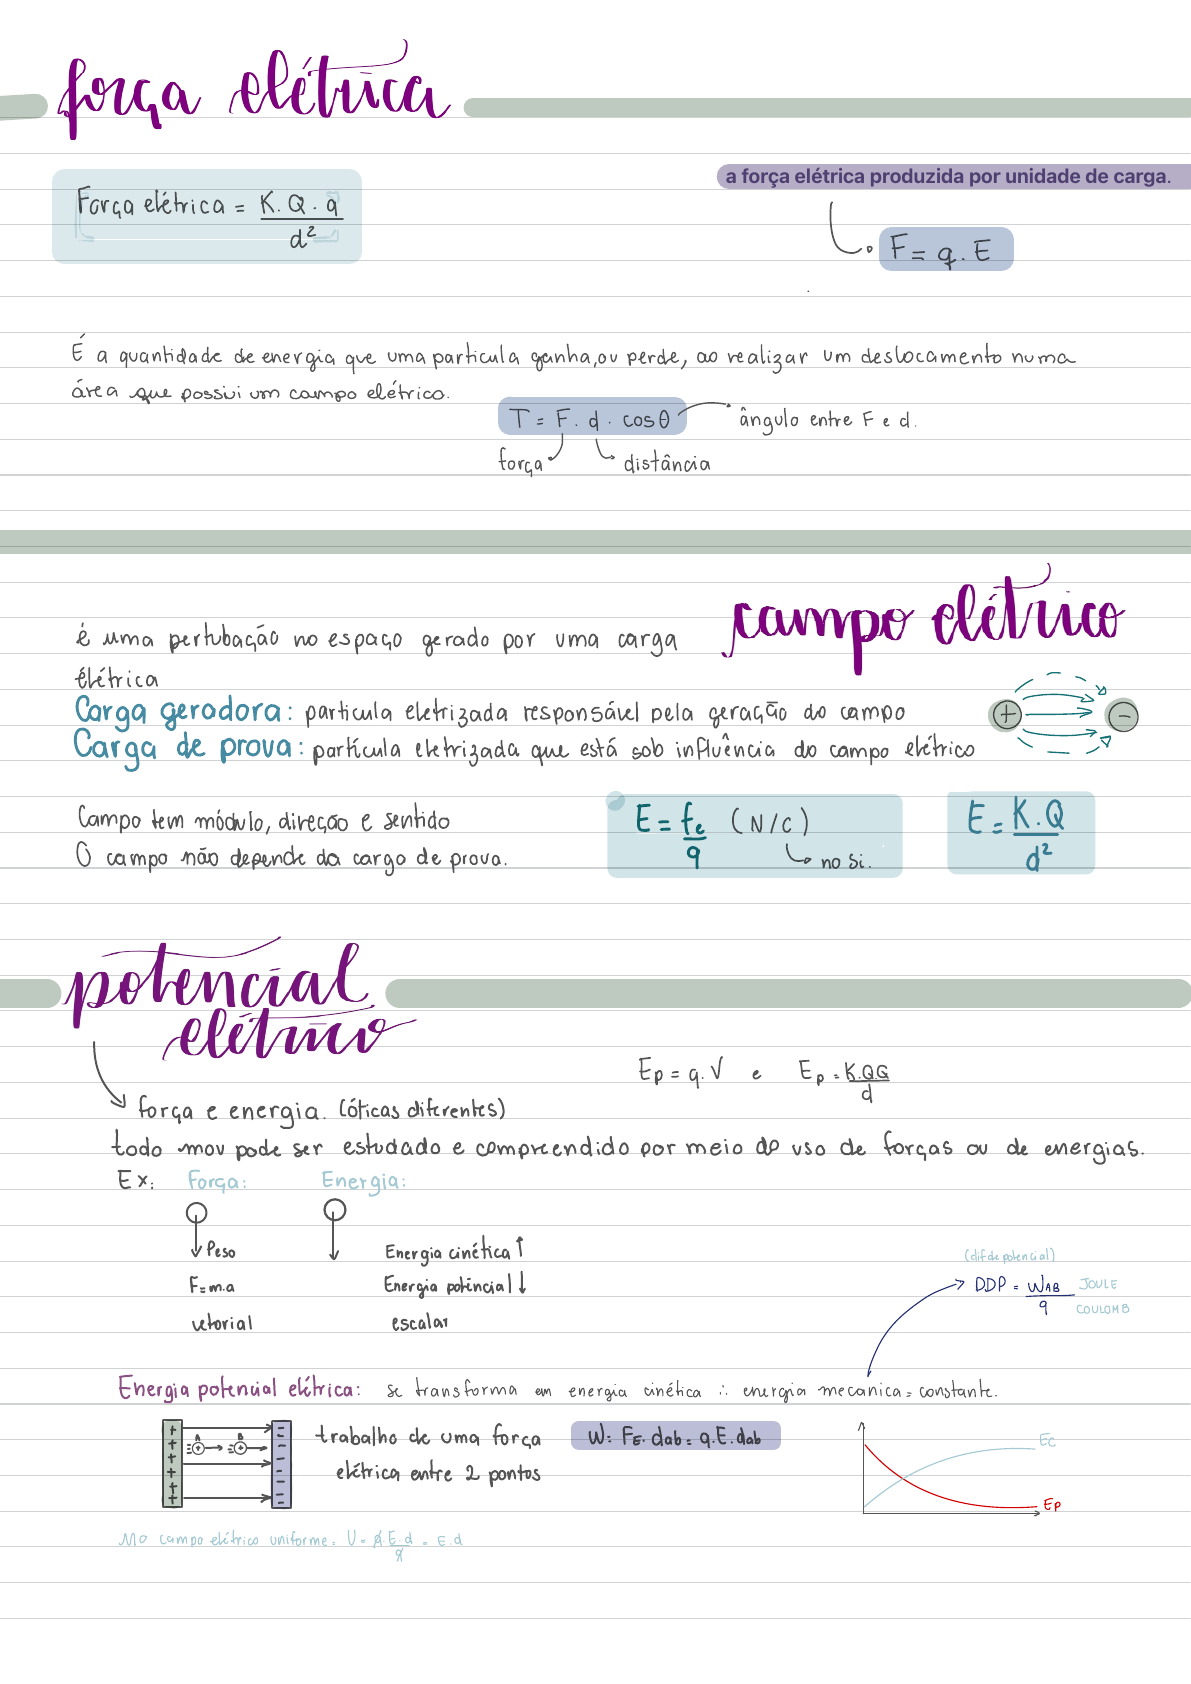 força elétrica
a força elétrica produzida por unidade de carga.
Força elétrica = K.Q.q
d²
F = q.E
É a quantidade de energia que uma particula ganha, ou perde, ao realizar um deslocamento numa
área que possui um campo elétrico.
T = F. d. cosθ
ângulo entre F e d.
força
distância
campo elétrico
é uma pertubação no espaço gerado por uma carga
elétrica
Carga geradora: particula eletrizada responsável pela geração do campo
Carga de prova: partícula eletrizada que está sob influência do campo elétrico
+ -
Campo tem módulo, direção e sentido
O campo não depende da carga de prova.
E = fe (N/C)
q
no Si.
E = K.Q
d²
potencial
elétrico
Ep = q.V e Ep = K.Q.Q
d
força e energia. (óticas diferentes)
todo mov pode ser estudado e compreendido por meio do uso de forças ou de energias.
Ex: Força: Energia:
Peso Energia cinética ↑
F=m.a Energia potêncial ↓
vetorial escalar
(dif de potencial)
DDP = WAB JOULE
q COULOMB
Energia potencial elétrica: se transforma em energia cinética ∴ energia mecanica = constante.
+ + + + + +
A B
- - - - - - -
trabalho de uma força
elétrica entre 2 pontos
W = FE. dab = q.E.dab
Ec
Ep
No campo elétrico uniforme = U = q.E.d = E.d
q